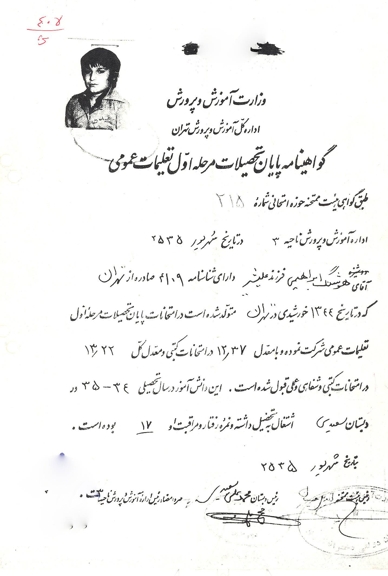 ۴۰۷
وزارت آموزش و پرورش
اداره کل آموزش و پرورش تهران
گواهینامه پایان تحصیلات مرحله اول تعلیمات عمومی
طبق گواهی هیئت ممتحنه حوزه امتحانی شماره ۲۱۵
اداره آموزش و پرورش ناحیه ۳ در تاریخ شهریور ۲۵۳۵
دوشیزه
آقای هوشنگ ابراهیمی فرزند علیشیر دارای شناسنامه ۴۱۰۹ صادره از تهران
که در تاریخ ۱۳۴۴ خورشیدی در تهران متولد شده است در امتحانات پایان تحصیلات مرحله اول
تعلیمات عمومی شرکت نموده و با معدل ۱۲/۳۷ در امتحانات کتبی و معدل کل ۱۳/۲۲
در امتحانات کتبی و شفاهی و عملی قبول شده است . این دانش آموز در سال تحصیلی ۳۴-۳۵ در
دبستان سعدی اشتغال به تحصیل داشته و نمره رفتار و مراقبت او ۱۷ بوده است .
بتاریخ شهریور ۲۵۳۵
رئیس هیئت ممتحنه رئیس دبستان مهر و امضاء رئیس اداره آموزش و پرورش ناحیه